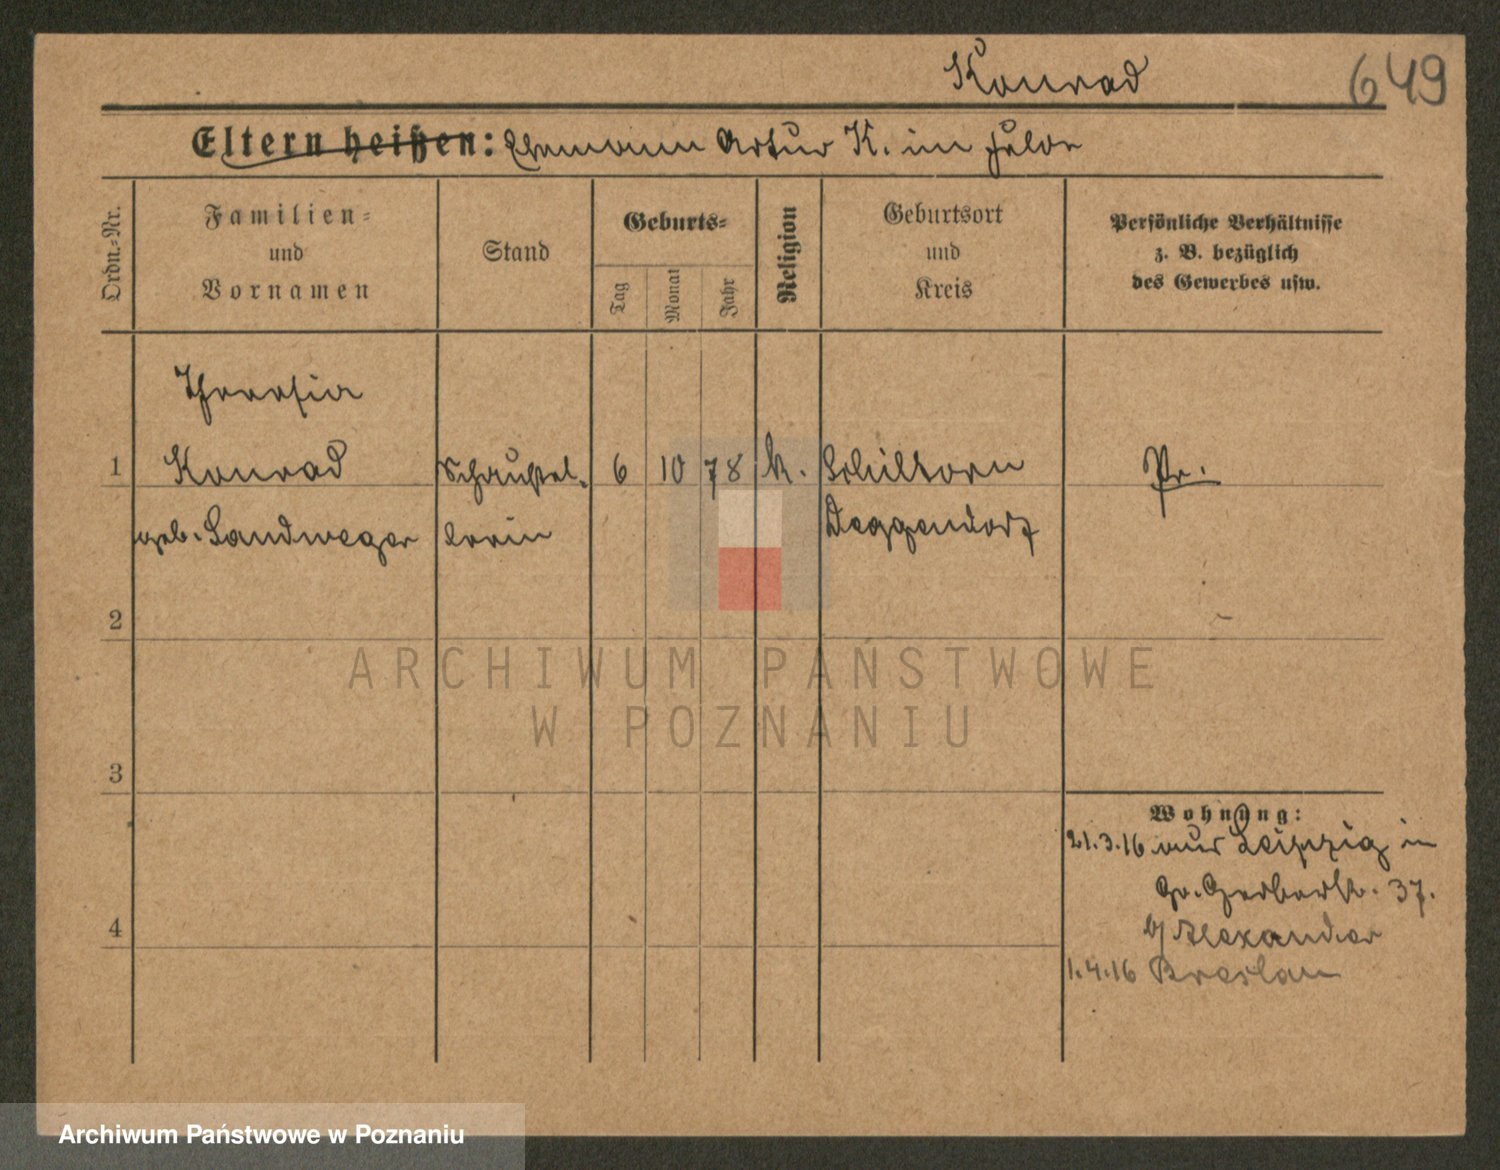 Konrad
649
Eltern heißen: Ehemann Artur K. im Felde
Ordn.-Nr.
Familien-
und
Vornamen
Stand
Geburts-
Tag
Monat
Jahr
Religion
Geburtsort
und
Kreis
Persönliche Verhältnisse
z. B. bezüglich
des Gewerbes usw.
Theresia
1 Konrad Schaustel- 6 10 78 k. Pr.
geb. Landweger lerin Deggendorf
2
3
4
Wohnung:
21.3.16 aus Leipzig in
Gr. Gerberstr. 37.
b/ Alexander
1.4.16 Breslau
ARCHIWUM PAŃSTWOWE
W POZNANIU
Archiwum Państwowe w Poznaniu